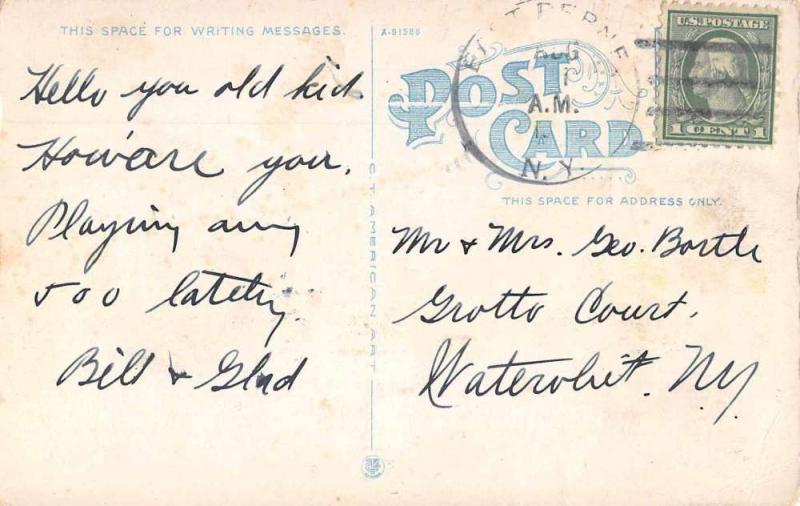 THIS SPACE FOR WRITING MESSAGES.
Hello you old kid
How are you.
Playing any
500 lately.
Bill & Glad
A-91580
CT AMERICAN ART
POST CARD
EAST BERNE
AUG
1
A.M.
N.Y.
U.S. POSTAGE
1 CENT 1
THIS SPACE FOR ADDRESS ONLY.
Mr & Mrs. Geo. Bortle
Grotto Court,
Watervliet. NY